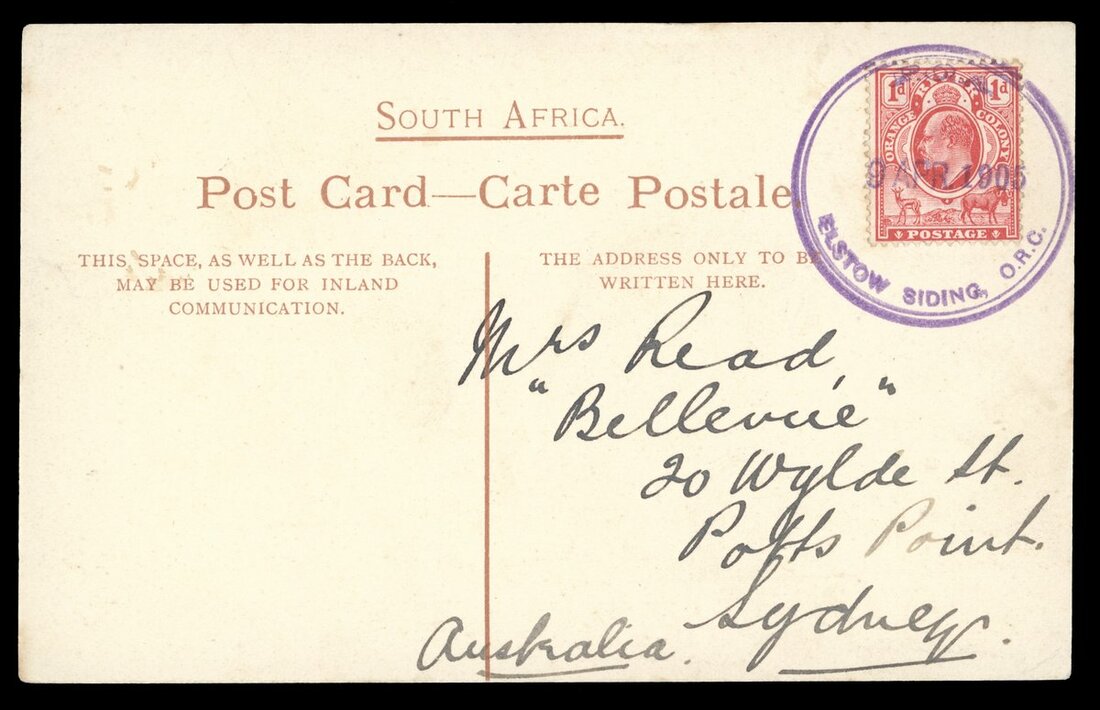 SOUTH AFRICA.
Post Card—Carte Postale
THIS SPACE, AS WELL AS THE BACK,
MAY BE USED FOR INLAND
COMMUNICATION.
THE ADDRESS ONLY TO BE
WRITTEN HERE.
1d RIVER 1d
ORANGE COLONY
POSTAGE
9 APR 1905
ELSTOW SIDING, O.R.C.
Mrs Read,
"Bellevue"
20 Wylde St.
Potts Point.
Sydney.
Australia.